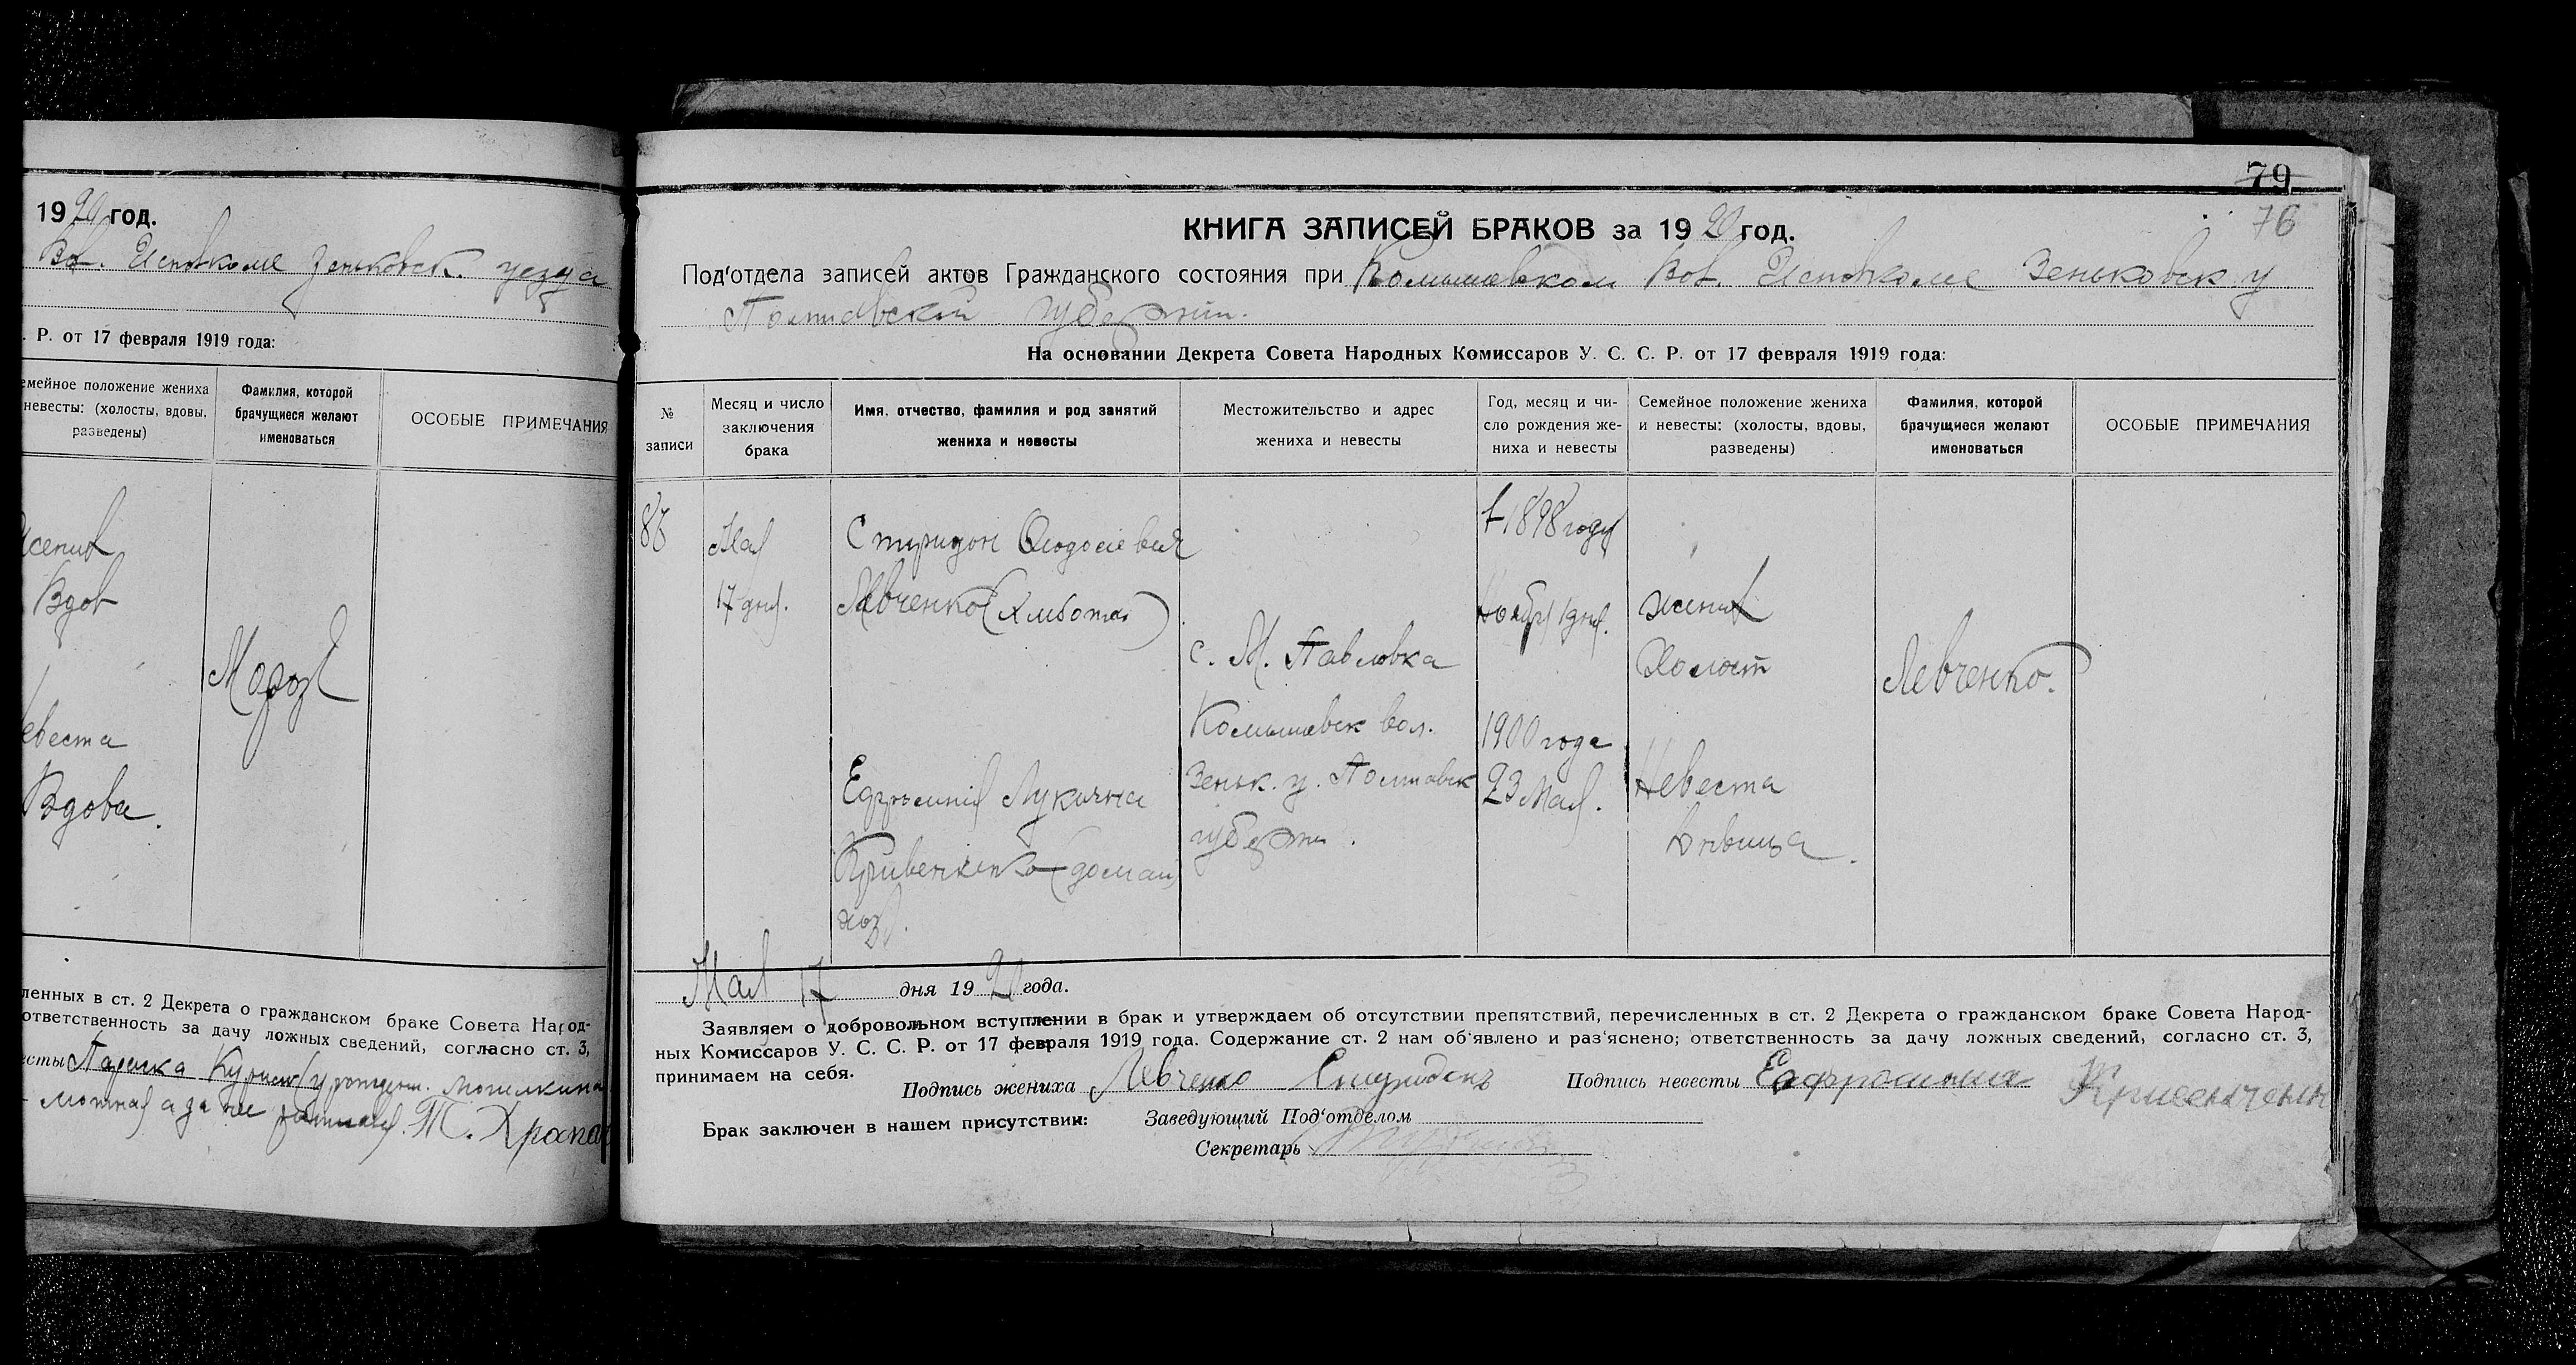 1920 год.
Вол. Исполкоме Зеньковск. уезда
. Р. от 17 февраля 1919 года:
емейное положение жениха
невесты: (холосты, вдовы,
разведены)
Фамилия, которой
брачущиеся желают
именоваться
ОСОБЫЕ ПРИМЕЧАНИЯ
Вдов
Мороз
евеста
Вдова.
ленных в ст. 2 Декрета о гражданском браке Совета Народ-
ответственность за дачу ложных сведений, согласно ст. 3,
есты Параска
79
76
КНИГА ЗАПИСЕЙ БРАКОВ за 1920 год.
Под'отдела записей актов Гражданского состояния при Комышевском Вол. Исполкоме Зеньковск у
Полтавской губернии.
На основании Декрета Совета Народных Комиссаров У. С. С. Р. от 17 февраля 1919 года:
№
записи
Месяц и число
заключения
брака
Имя, отчество, фамилия и род занятий
жениха и невесты
Местожительство и адрес
жениха и невесты
Год, месяц и чи-
сло рождения же-
ниха и невесты
Семейное положение жениха
и невесты: (холосты, вдовы,
разведены)
Фамилия, которой
брачущиеся желают
именоваться
ОСОБЫЕ ПРИМЕЧАНИЯ
Мая
17 дня.
Спиридон
Левченко
Ефросинія Лукична
Кривенченко (домаш
хоз).
с. М. Павловка
Комышевск вол.
Зеньк. у. Полтавск
губерн.
1898 году
Ноября 1 дня.
1900 года
23 Мая.
жених
Холост
Невеста
Дѣвица.
Левченко.
Мая 17 дня 1920 года.
Заявляем о добровольном вступлении в брак и утверждаем об отсутствии препятствий, перечисленных в ст. 2 Декрета о гражданском браке Совета Народ-
ных Комиссаров У. С. С. Р. от 17 февраля 1919 года. Содержание ст. 2 нам об'явлено и раз'яснено; ответственность за дачу ложных сведений, согласно ст. 3,
принимаем на себя.
Подпись жениха Левченко Спиридонъ Подпись невесты Ефросиния
Брак заключен в нашем присутствии: Заведующий Под'отделом
Секретарь